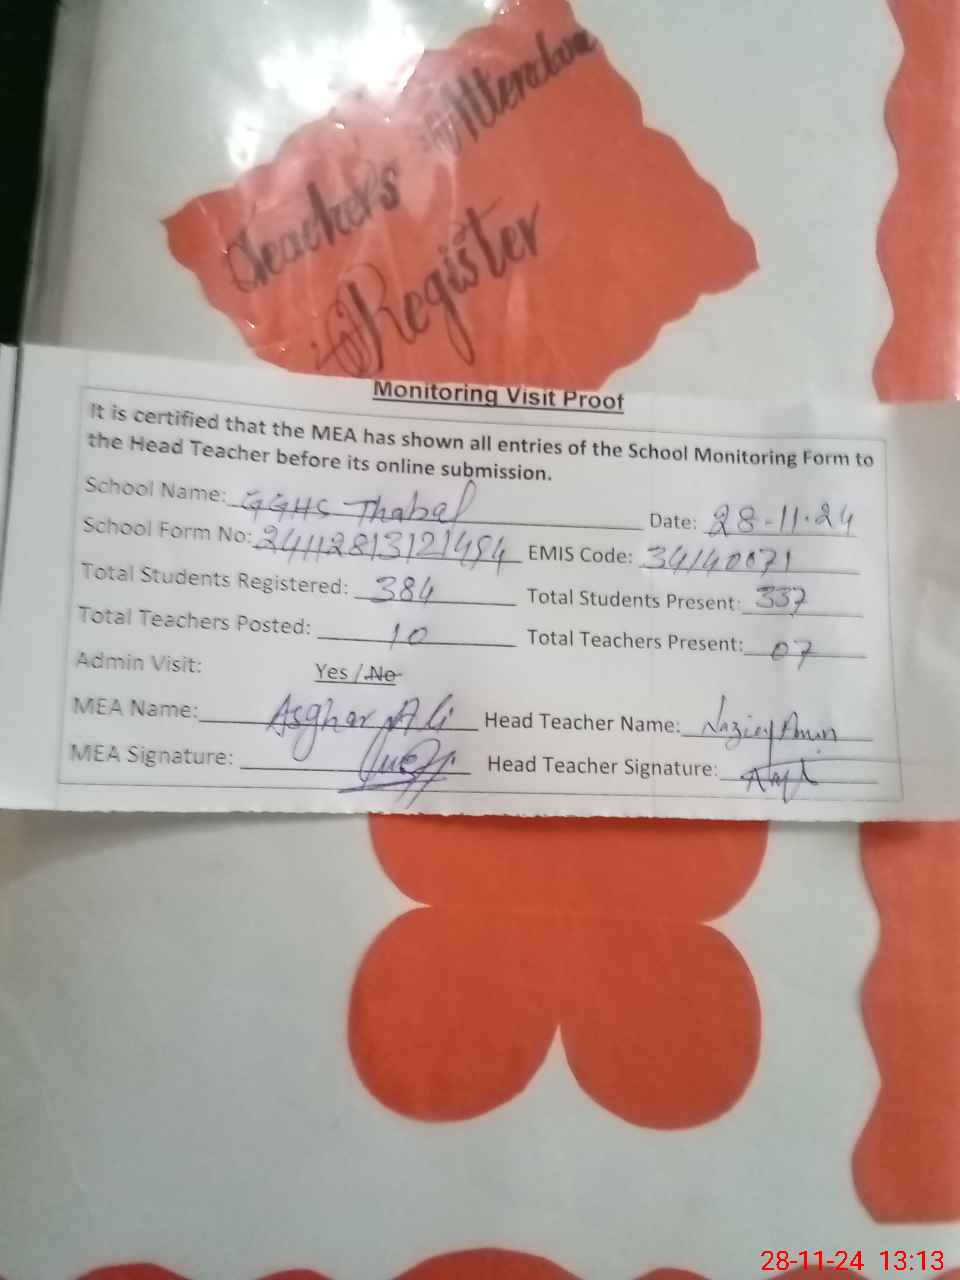 Teacher's Attendance
Register
Monitoring Visit Proof
It is certified that the MEA has shown all entries of the School Monitoring Form to
the Head Teacher before its online submission.
School Name: GGHS Thabal Date: 28-11-24
School Form No: 24112813121494 EMIS Code: 34140071
Total Students Registered: 384 Total Students Present: 337
Total Teachers Posted: 10 Total Teachers Present: 07
Admin Visit: Yes / No
MEA Name: Asghar Ali Head Teacher Name:
MEA Signature: Head Teacher Signature:
28-11-24 13:13